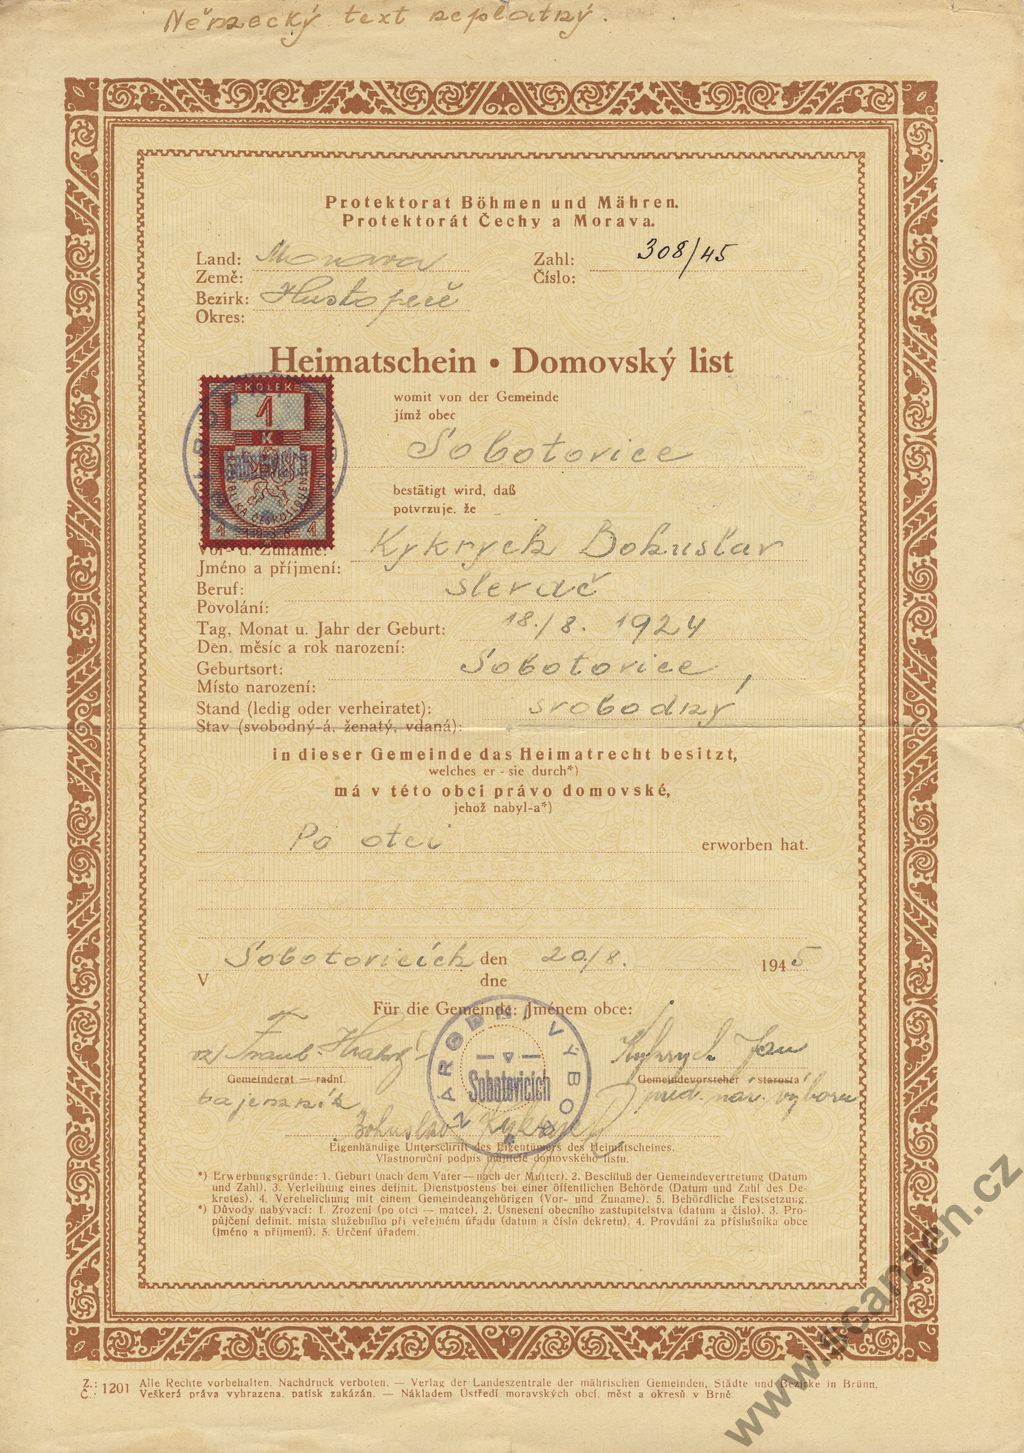 Německý text neplatný.
Protektorat Böhmen und Mähren.
Protektorát Čechy a Morava.
Land: Morava
Země:
Zahl: 308/45
Číslo:
Bezirk: Hustopeče
Okres:
Heimatschein • Domovský list
KOLEK
1
K
womit von der Gemeinde
jímž obec
Sobotovice
bestätigt wird, daß
potvrzuje, že
Vor- u. Zuname: Kykrych Bohuslav
Jméno a příjmení:
Beruf:
Povolání:
Tag, Monat u. Jahr der Geburt: 18./8. 1924
Den, měsíc a rok narození:
Geburtsort: Sobotovice,
Místo narození:
Stand (ledig oder verheiratet): svobodný
Stav (svobodný-á, ženatý, vdaná):
in dieser Gemeinde das Heimatrecht besitzt,
welches er - sie durch*)
má v této obci právo domovské,
jehož nabyl-a*)
Po otci erworben hat.
Sobotovicích den 20./8. 1945
V dne
Für die Gemeinde: Jménem obce:
NÁRODNÍ VÝBOR
V
Sobotovicích
Kykrych Jan
Gemeinderat — radní. Gemeindevorsteher - starosta
tajemník před. nár. výboru
Bohuslav Kykrych
Eigenhändige Unterschrift des Eigentümers des Heimatscheines.
Vlastnoruční podpis majitele domovského listu.
*) Erwerbungsgründe: 1. Geburt (nach dem Vater — nach der Mutter). 2. Beschluß der Gemeindevertretung (Datum
und Zahl). 3. Verleihung eines definit. Dienstpostens bei einer öffentlichen Behörde (Datum und Zahl des De-
kretes). 4. Verehelichung mit einem Gemeindeangehörigen (Vor- und Zuname). 5. Behördliche Festsetzung.
*) Důvody nabývací: 1. Zrození (po otci — matce). 2. Usnesení obecního zastupitelstva (datum a číslo). 3. Pro-
půjčení definit. místa služebního při veřejném úřadu (datum a číslo dekretu). 4. Provdání za příslušníka obce
(jméno a příjmení). 5. Určení úřadem.
Z.: 1201 Alle Rechte vorbehalten. Nachdruck verboten. — Verlag der Landeszentrale der mährischen Gemeinden, Städte und Bezirke in Brünn.
Č.: Veškerá práva vyhrazena, patisk zakázán. — Nákladem Ústředí moravských obcí, měst a okresů v Brně.
www.scanzen.cz